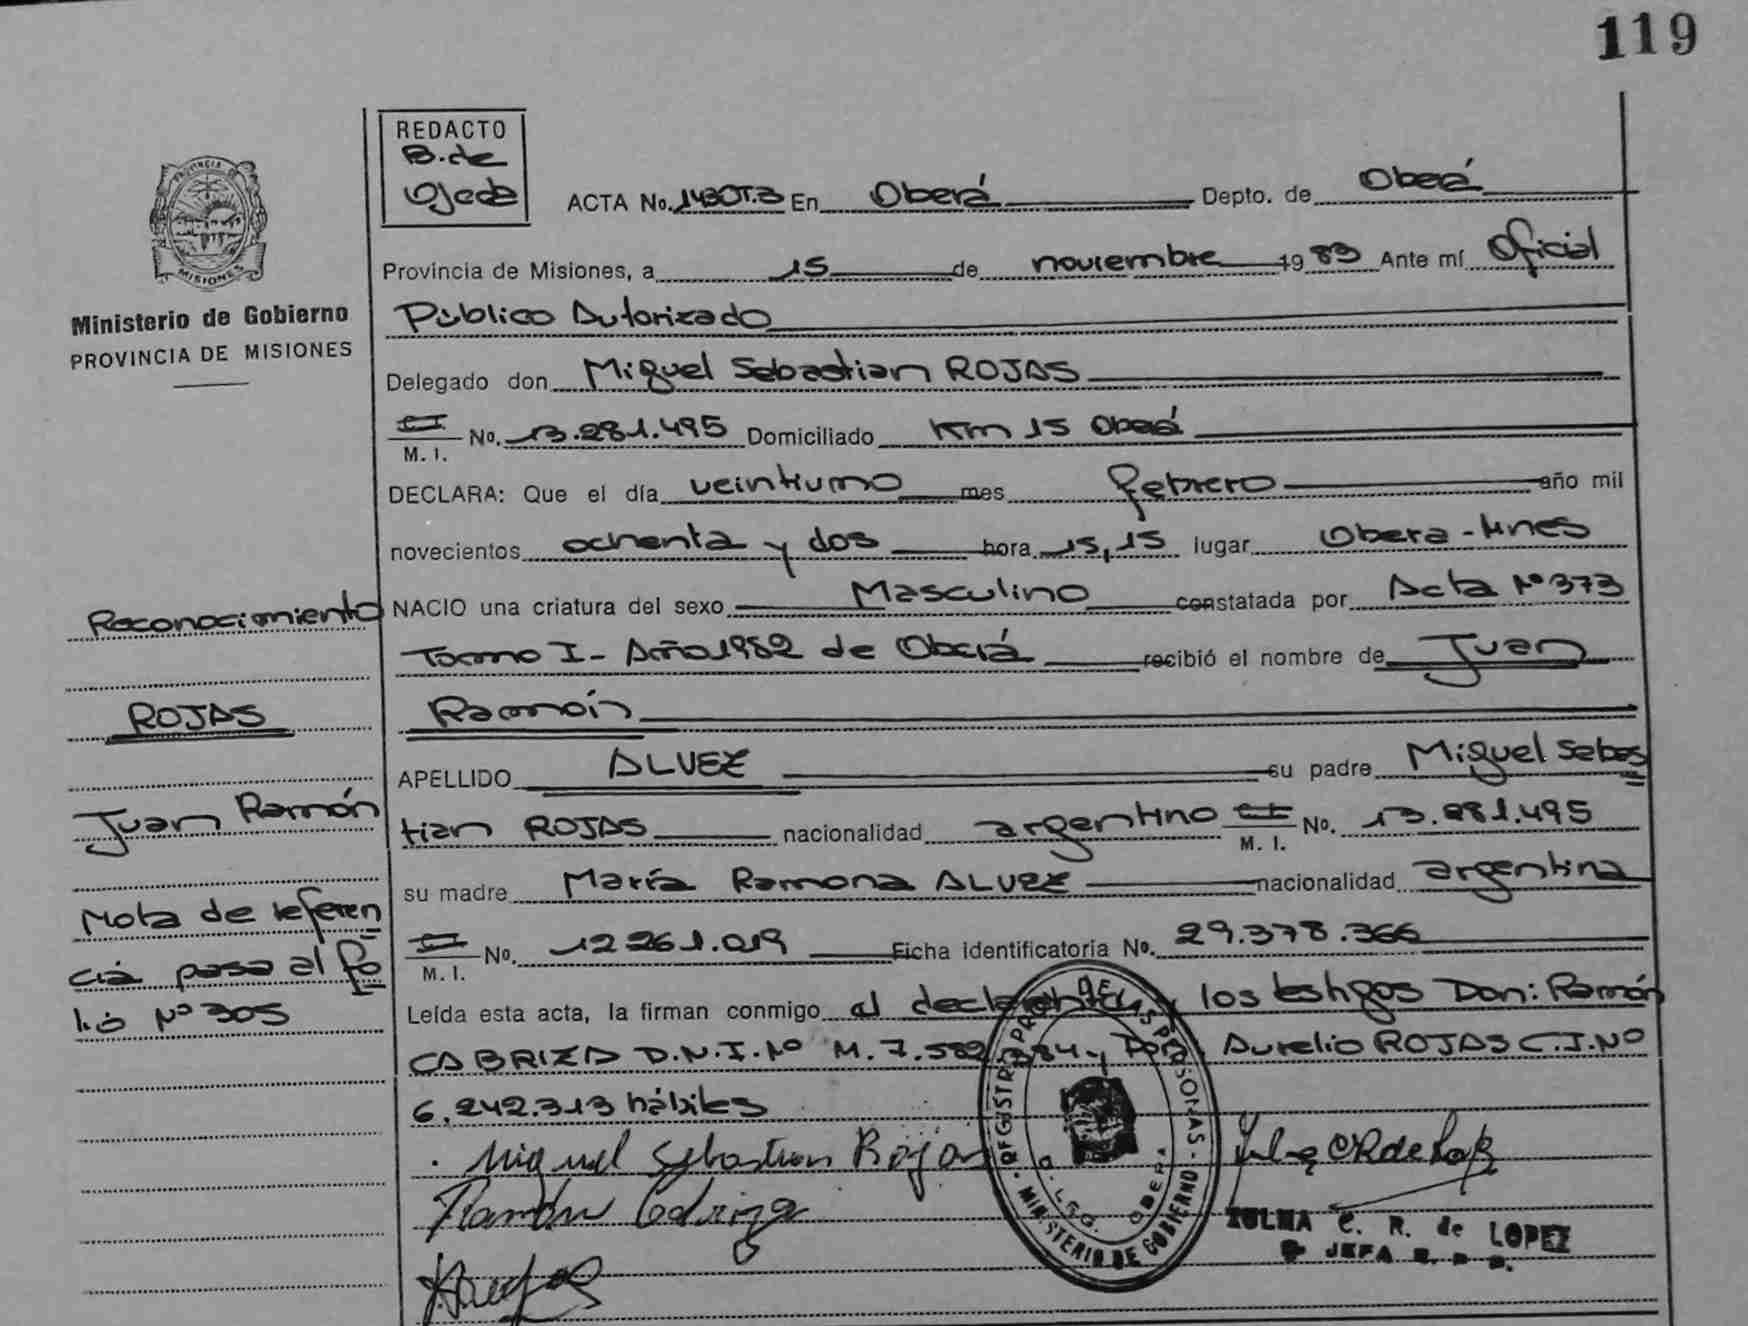 119
REDACTO
B. de
Ojeda
ACTA No. 1430T.3 En Oberá Depto. de Oberá
Provincia de Misiones, a 15 de noviembre 19 83 Ante mí Oficial
Público Autorizado
Delegado don Miguel Sebastian ROJAS
C.I. M. I. No. 13.281.495 Domiciliado Km 15 Oberá
DECLARA: Que el día veintiuno mes febrero año mil
novecientos ochenta y dos hora 15,15 lugar Obera - Mnes
NACIO una criatura del sexo Masculino constatada por Acta Nº 373
Tomo I - Año 1982 de Oberá recibió el nombre de Juan
Ramón
APELLIDO ALVEZ su padre Miguel Sebas
tian ROJAS nacionalidad argentino C.I. M. I. No. 13.281.495
su madre María Ramona ALVEZ nacionalidad argentina
C.I. M. I. No. 12 261.019 Ficha identificatoria No. 29.378.366
Leída esta acta, la firman conmigo el declarante y los testigos Don: Ramón
CABRIZA D.N.I. Nº M. 7.582. 84 y Don Aurelio ROJAS C.I. Nº
6.242.313 hábiles
Miguel Sebastian Rojas
Ramón
ZULMA C. R. de LOPEZ
JEFA
PROVINCIA DE
MISIONES
Ministerio de Gobierno
PROVINCIA DE MISIONES
Reconocimiento
ROJAS
Juan Ramón
Nota de referen
cia pasa al fo
lio Nº 305
DE LAS PERSONAS - MINISTERIO DE GOBIERNO
OBERA